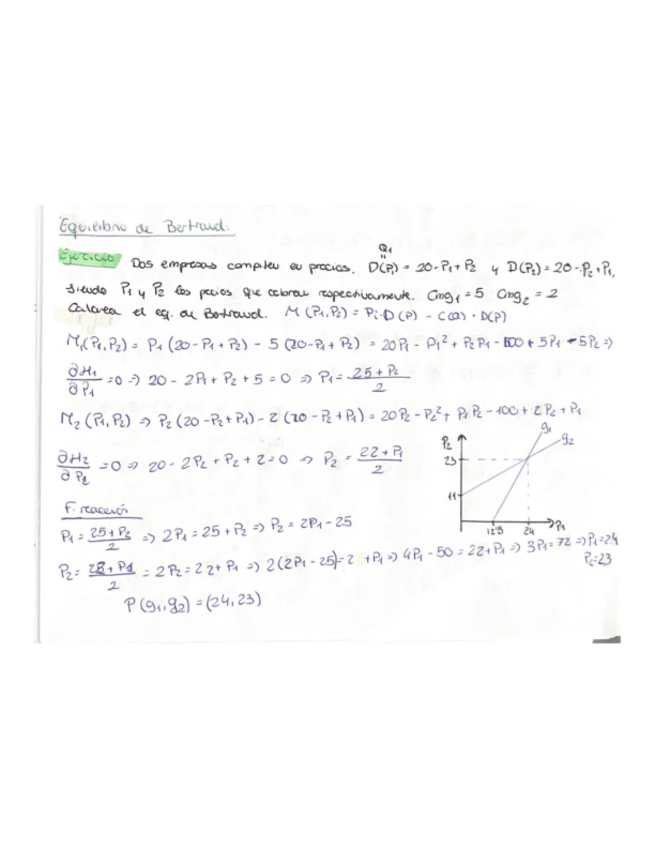 Equilibrio de Bertrand:
Ejercicio Dos empresas compiten en precios. D(P₁) = 20-P₁+P₂ y D(P₂) = 20-P₂+P₁,
Q₁
"
siendo P₁ y P₂ los precios que cobran respectivamente. Cmg₁ = 5 Cmg₂ = 2
Calcular el eq. de Bertrand. M (P₁,P₂) = Pi·D(P) - C(Q)·D(P)
M₁(P₁,P₂) = P₁(20-P₁+P₂) - 5(20-P₁+P₂) = 20P₁ - P₁² + P₂P₁ - 100 + 5P₁ - 5P₂ =>
∂M₁/∂P₁ =0 => 20 - 2P₁ + P₂ + 5 = 0 => P₁ = 25+P₂/2
M₂(P₁,P₂) => P₂(20-P₂+P₁) - 2(20-P₂+P₁) = 20P₂ - P₂² + P₁P₂ - 100 + 2P₂ + P₁
∂M₂/∂P₂ =0 => 20 - 2P₂ + P₂ + 2 = 0 => P₂ = 22+P₁/2
P₂
g₁
g₂
23
11
12'5
24
P₁
F. reacción
P₁ = 25+P₂/2 => 2P₁ = 25+P₂ => P₂ = 2P₁-25
P₂ = 22+P₁/2 = 2P₂ = 22+P₁ => 2(2P₁-25) = 2 +P₁ => 4P₁-50 = 22+P₁ => 3P₁ = 72 => P₁=24
P₂=23
P(g₁,g₂) = (24,23)